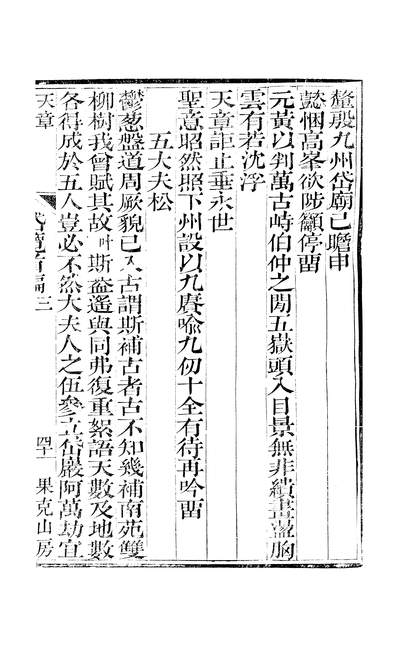 鼇殿九州岱廟已瞻申
懿悃高峯欲陟籲停畱
元黃以判萬古峙伯仲之閒五嶽頭入目景無非繢畫盪胸
雲有若沈浮
天章詎止垂永世
聖意昭然照下州設以九賡喩九仞十全有待再吟畱
五大夫松
鬱蔥盤道周厥貌已入古謂斯補古者古不知幾補南苑雙
柳樹我曾賦其故叶斯盍遙與同弗復重絮語天數及地數
各得成於五人豈必不然大夫人之伍參立岱巖阿萬劫宜
天章
岱覽首編三
四十
果克山房